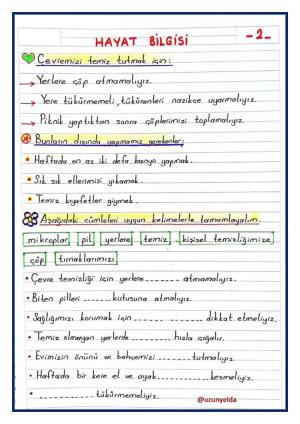 HAYAT BİLGİSİ
-2-
Çevremizi temiz tutmak için:
→ Yerlere çöp atmamalıyız.
→ Yere tükürmemeli, tükürenleri nazikçe uyarmalıyız.
→ Piknik yaptıktan sonra çöplerimizi toplamalıyız.
Bunların dışında yapmamız gerekenler:
• Haftada en az iki defa banyo yapmak.
• Sık sık ellerimizi yıkamak.
• Temiz kıyafetler giymek.
Aşağıdaki cümleleri uygun kelimelerle tamamlayalım.
mikroplar pil yerlere temiz kişisel temizliğimize
çöp tırnaklarımızı
• Çevre temizliği için yerlere .......... atmamalıyız.
• Biten pilleri .......... kutusuna atmalıyız.
• Sağlığımızı korumak için .......... dikkat etmeliyiz.
• Temiz olmayan yerlerde .......... hızla çoğalır.
• Evimizin önünü ve bahçemizi .......... tutmalıyız.
• Haftada bir kere el ve ayak .......... kesmeliyiz.
• .......... tükürmemeliyiz.
@uzunyelda